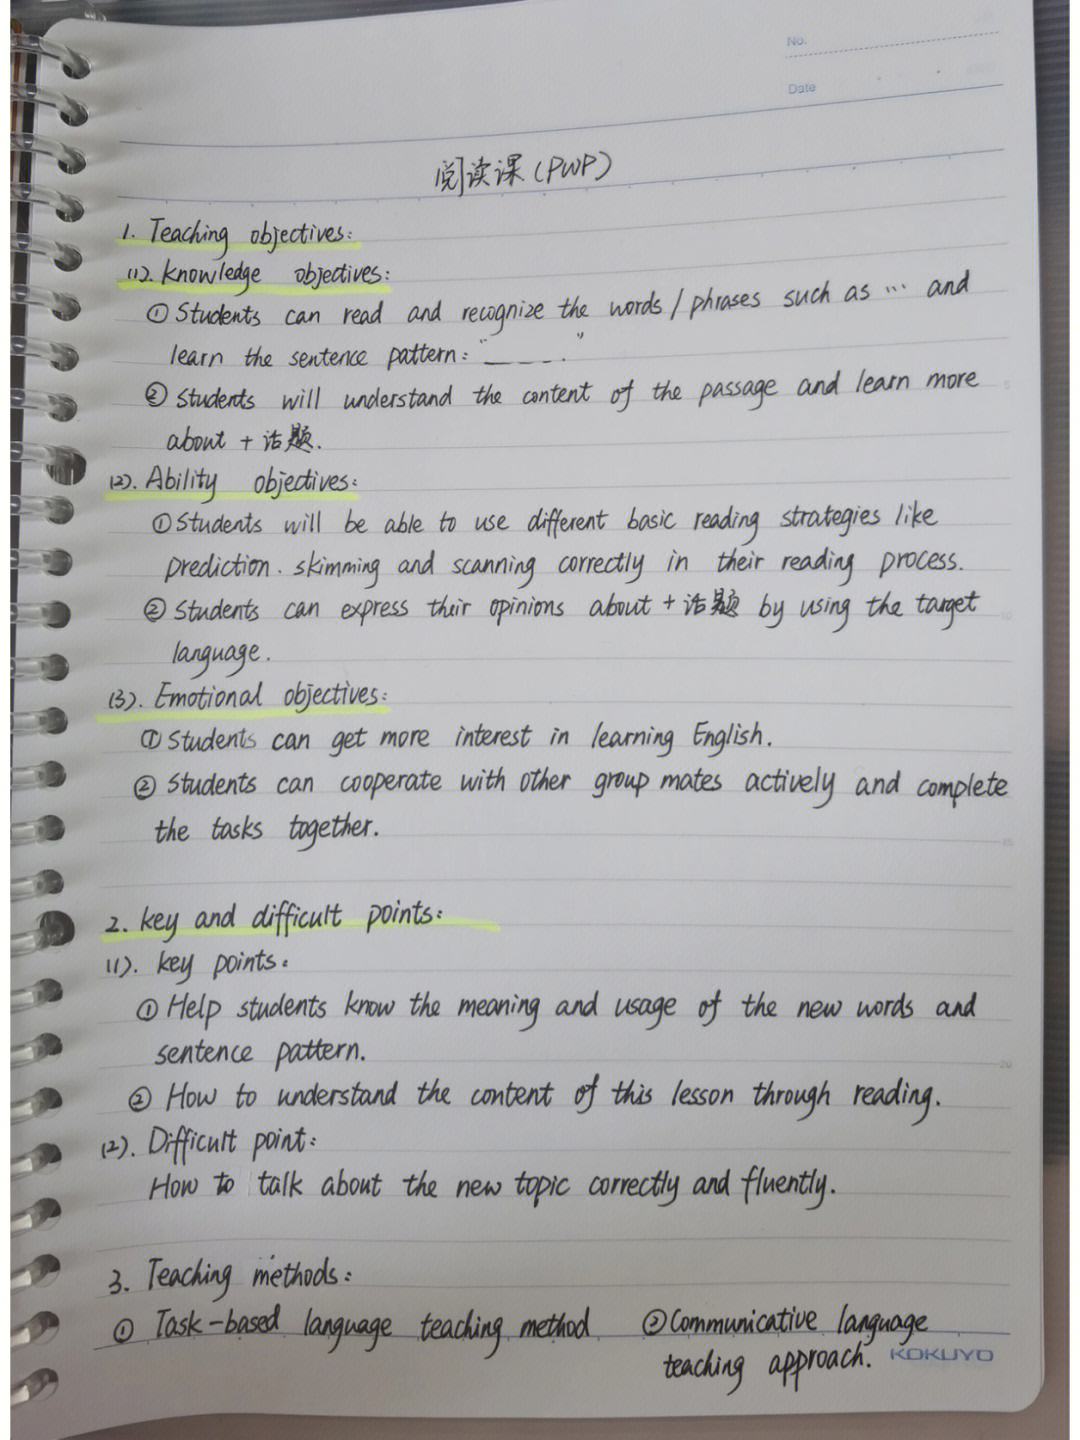 No.
Date
阅读课(PWP)
1. Teaching objectives:
(1). knowledge objectives:
① Students can read and recognize the words/phrases such as ... and
learn the sentence pattern: "____."
② Students will understand the content of the passage and learn more
about + 话题.
(2). Ability objectives:
① Students will be able to use different basic reading strategies like
prediction. skimming and scanning correctly in their reading process.
② Students can express their opinions about + 话题 by using the target
language.
(3). Emotional objectives:
① Students can get more interest in learning English.
② Students can cooperate with other group mates actively and complete
the tasks together.
2. key and difficult points:
(1). key points:
① Help students know the meaning and usage of the new words and
sentence pattern.
② How to understand the content of this lesson through reading.
(2). Difficult point:
How to talk about the new topic correctly and fluently.
3. Teaching methods:
① Task-based language teaching method ② Communicative language
teaching approach.
KOKUYO